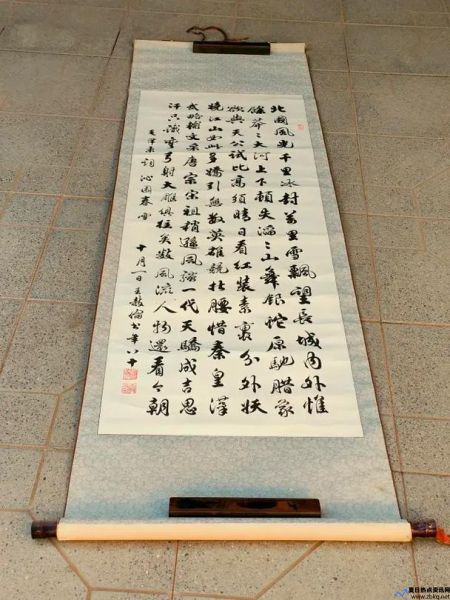 北國風光千里冰封萬里雪飄望長城內外惟
餘莽〻大河上下頓失滔〻山舞銀蛇原馳腊象
欲與天公試比高須晴日看紅裝素裹分外妖
嬈江山如此多嬌引無數英雄競折腰惜秦皇漢
武略輸文采唐宗宋祖稍遜風騷一代天驕成吉思
汗只識彎弓射大雕俱往矣數風流人物還看今朝
毛澤東詞沁園春雪 十月一日王倫书年八十
夏日热点资讯网
www.zbkq.net